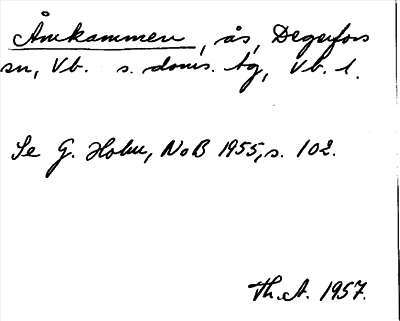 Åmkammen, ås, Degerfors
sn, Vb. s. doms. tg, Vb. l.
Se G. Holm, NoB 1955, s. 102.
Th. A. 1957.